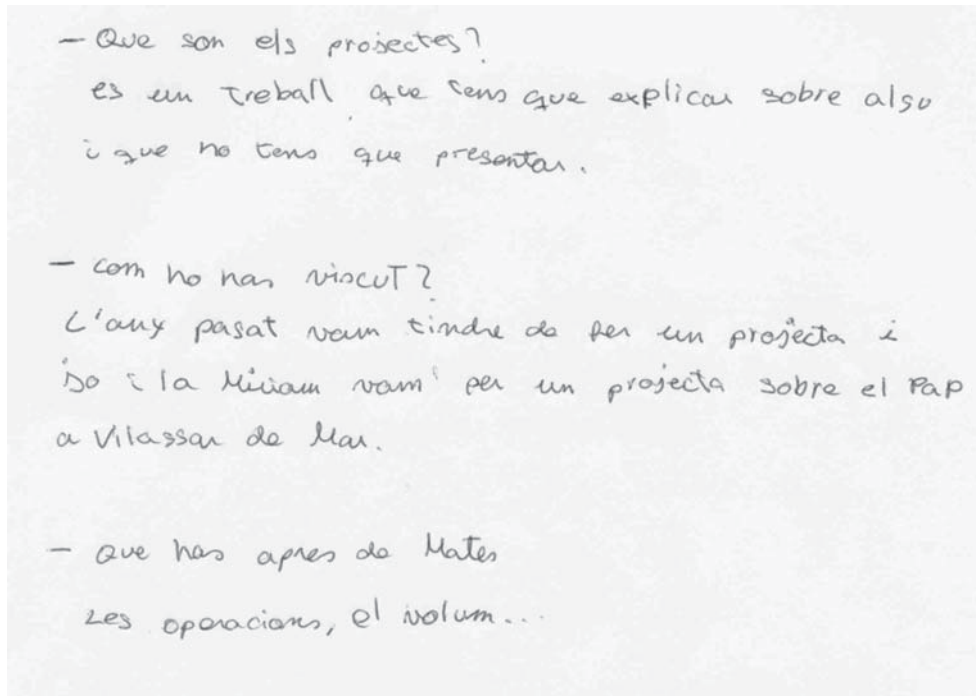 - Que son els projectes?
es un treball que tens que explicar sobre algu
i que ho tens que presentar.
- com ho has viscut?
L'any pasat vam tindre de fer un projecta i
jo i la Miriam vam fer un projecta sobre el Pap
a Vilassar de Mar.
- que has apres de Mates
Les operacions, el volum...